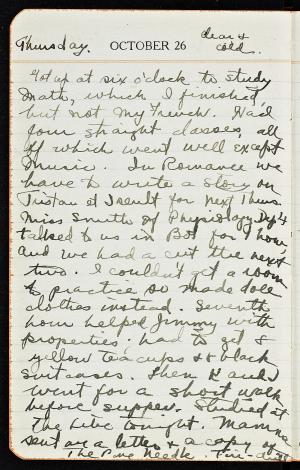 Thursday. OCTOBER 26 clear & cold.
Got up at six o'clock to study
Math, which I finished,
but not my French. Had
four straight classes, all
of which went well except
Music. In Romance we
have to write a story on
Tristan & Iseult for next Thurs.
Miss Smith of Physiology Dept
talked to us in Bot for 1 hour
and we had a cut the next
two. I couldn't get a room
to practice so made dole
clothes instead. Seventh
hour helped Jimmy with
properties. Had to get 8
yellow tea cups & 8 black
suitcases. Then K and I
went for a short walk
before supper. Studied at
the Libe tonight. Mamma
sent me a letter & a copy of
The Pine Needle.